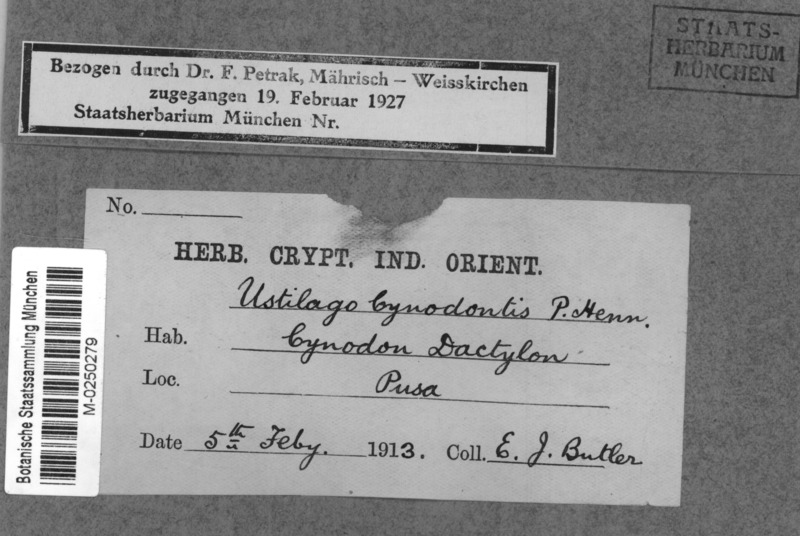 STAATS-
HERBARIUM
MÜNCHEN
Bezogen durch Dr. F. Petrak, Mährisch – Weisskirchen
zugegangen 19. Februar 1927
Staatsherbarium München Nr.
No.
HERB. CRYPT. IND. ORIENT.
Ustilago Cynodontis P. Henn.
Hab. Cynodon Dactylon
Loc. Pusa
Date 5th Feby. 1913. Coll. E. J. Butler
Botanische Staatssammlung München
M-0250279